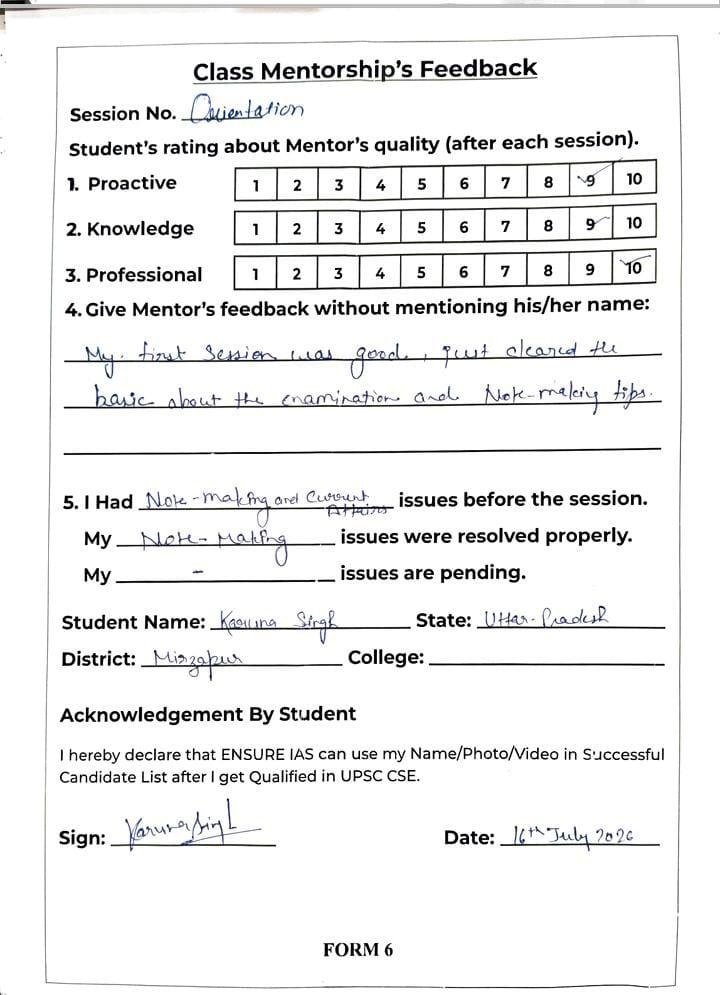 Class Mentorship's Feedback
Session No. Orientation
Student's rating about Mentor's quality (after each session).
1. Proactive 1 2 3 4 5 6 7 8 9 10
2. Knowledge 1 2 3 4 5 6 7 8 9 10
3. Professional 1 2 3 4 5 6 7 8 9 10
4. Give Mentor's feedback without mentioning his/her name:
My first session was good, just cleared the
basic about the examination and Note-making tips.
5. I Had Note-making and Current Affairs issues before the session.
My Note-Making issues were resolved properly.
My - issues are pending.
Student Name: Karuna Singh State: Uttar-Pradesh
District: Mirzapur College:
Acknowledgement By Student
I hereby declare that ENSURE IAS can use my Name/Photo/Video in Successful
Candidate List after I get Qualified in UPSC CSE.
Sign: Karuna Singh Date: 16th July 2026
FORM 6